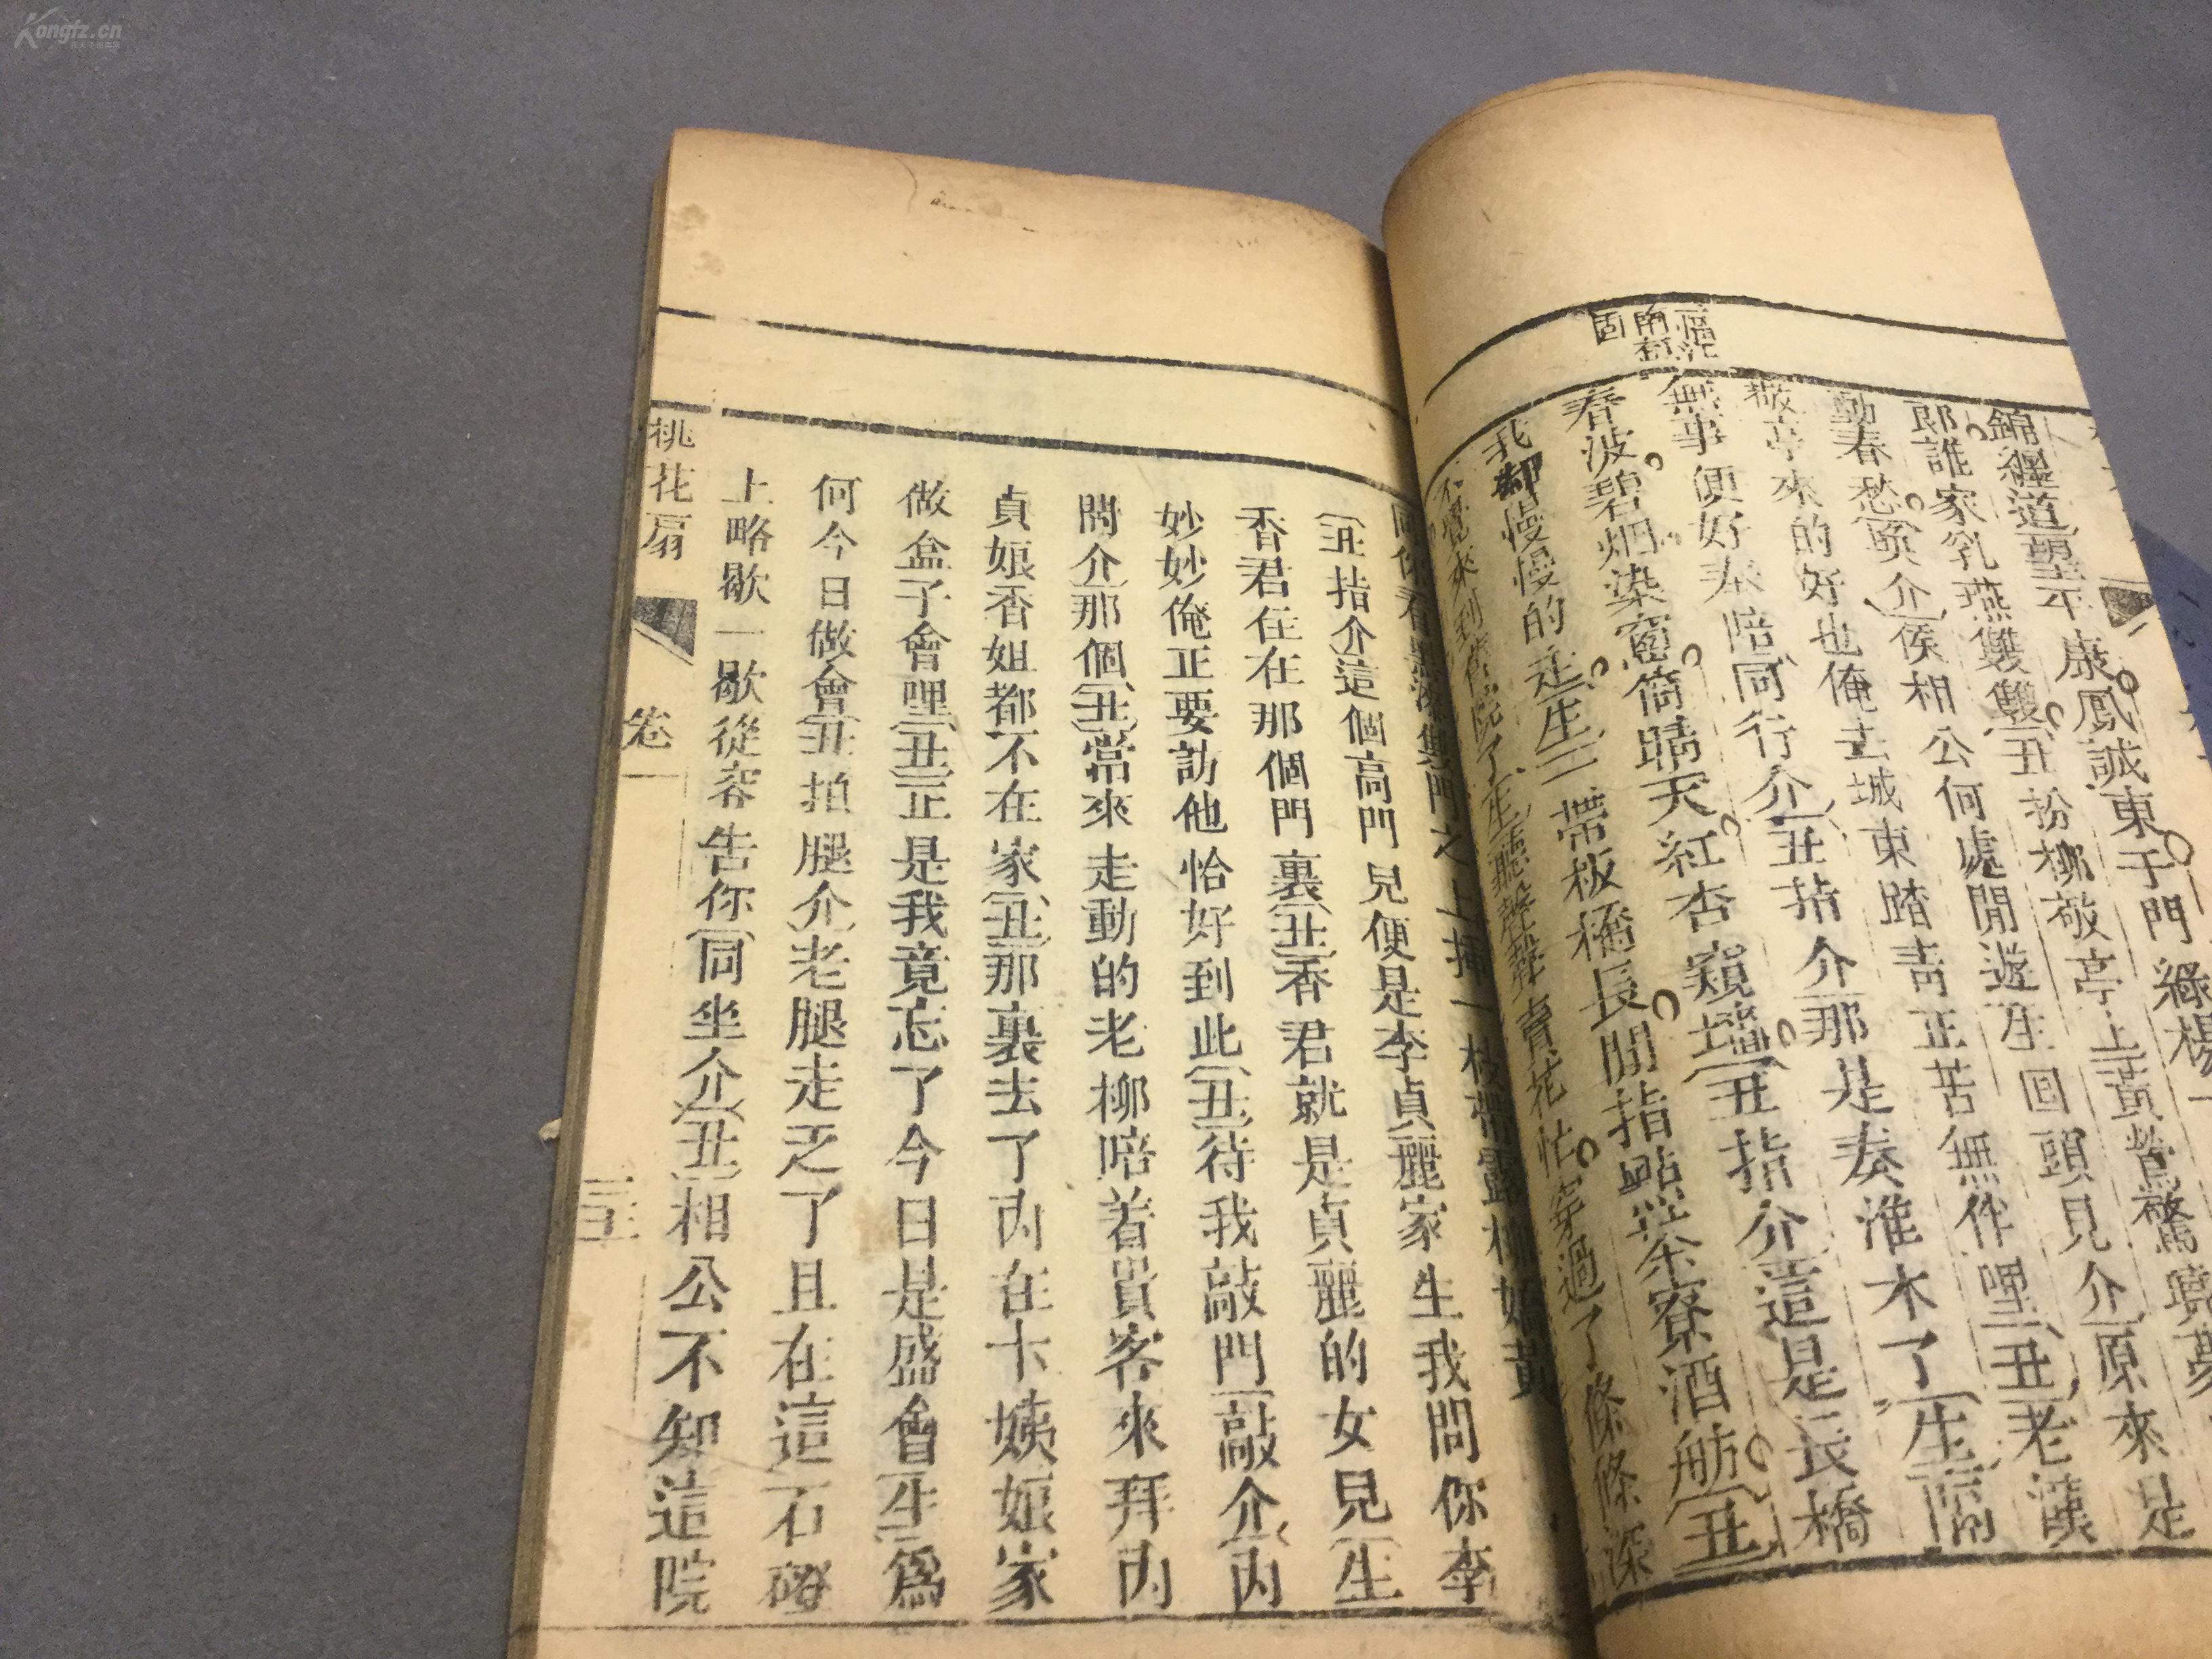 錦纏道
望平康鳳誠東千門綠楊一
郎誰家乳燕雙雙丑扮柳敬亭上黃鶯驚曉夢
動春愁喚介侯相公何處閒遊生回頭見介原來是
敬亭來的好也俺去城東踏青正苦無伴哩丑老漢
無事便好奉陪同行介丑指介那是秦淮水了生隔
春波碧烟染窗倚晴天紅杏窺墻丑指介這是長橋
我却慢慢的走生一帶板橋長閒指點茶寮酒舫丑
不覺來到舊院了生聽聲聲賣花忙穿過了條條深
上插一枝帶露柳嬌黃
丑指介這個高門兒便是李貞麗家生我問你李
香君住在那個門裏丑香君就是貞麗的女兒生
妙妙俺正要訪他恰好到此丑待我敲門敲介內
問介那個丑常來走動的老柳陪着貴客來拜內
貞娘香姐都不在家丑那裏去了內在卞姨娘家
做盒子會哩丑正是我竟忘了今日是盛會生爲
何今日做會丑拍腿介老腿走乏了且在這石磴
上略歇一歇從容告你同坐介丑相公不知這院
桃花扇
卷一
Kongfz.cn